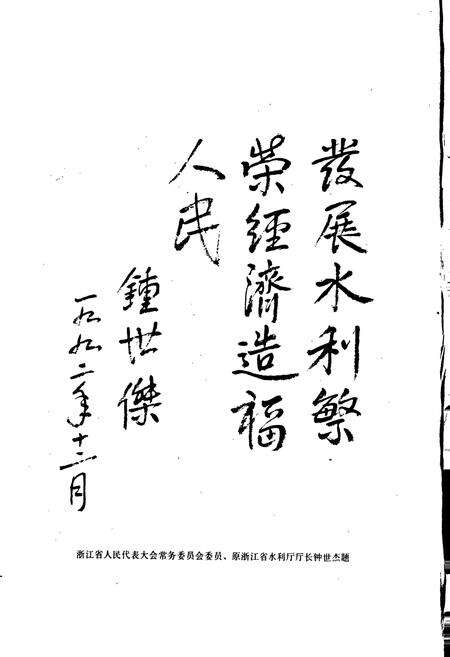 發展水利繁
榮經濟造福
人民
鍾世傑
一九九二年十二月
浙江省人民代表大会常务委员会委员、原浙江省水利厅厅长钟世杰题